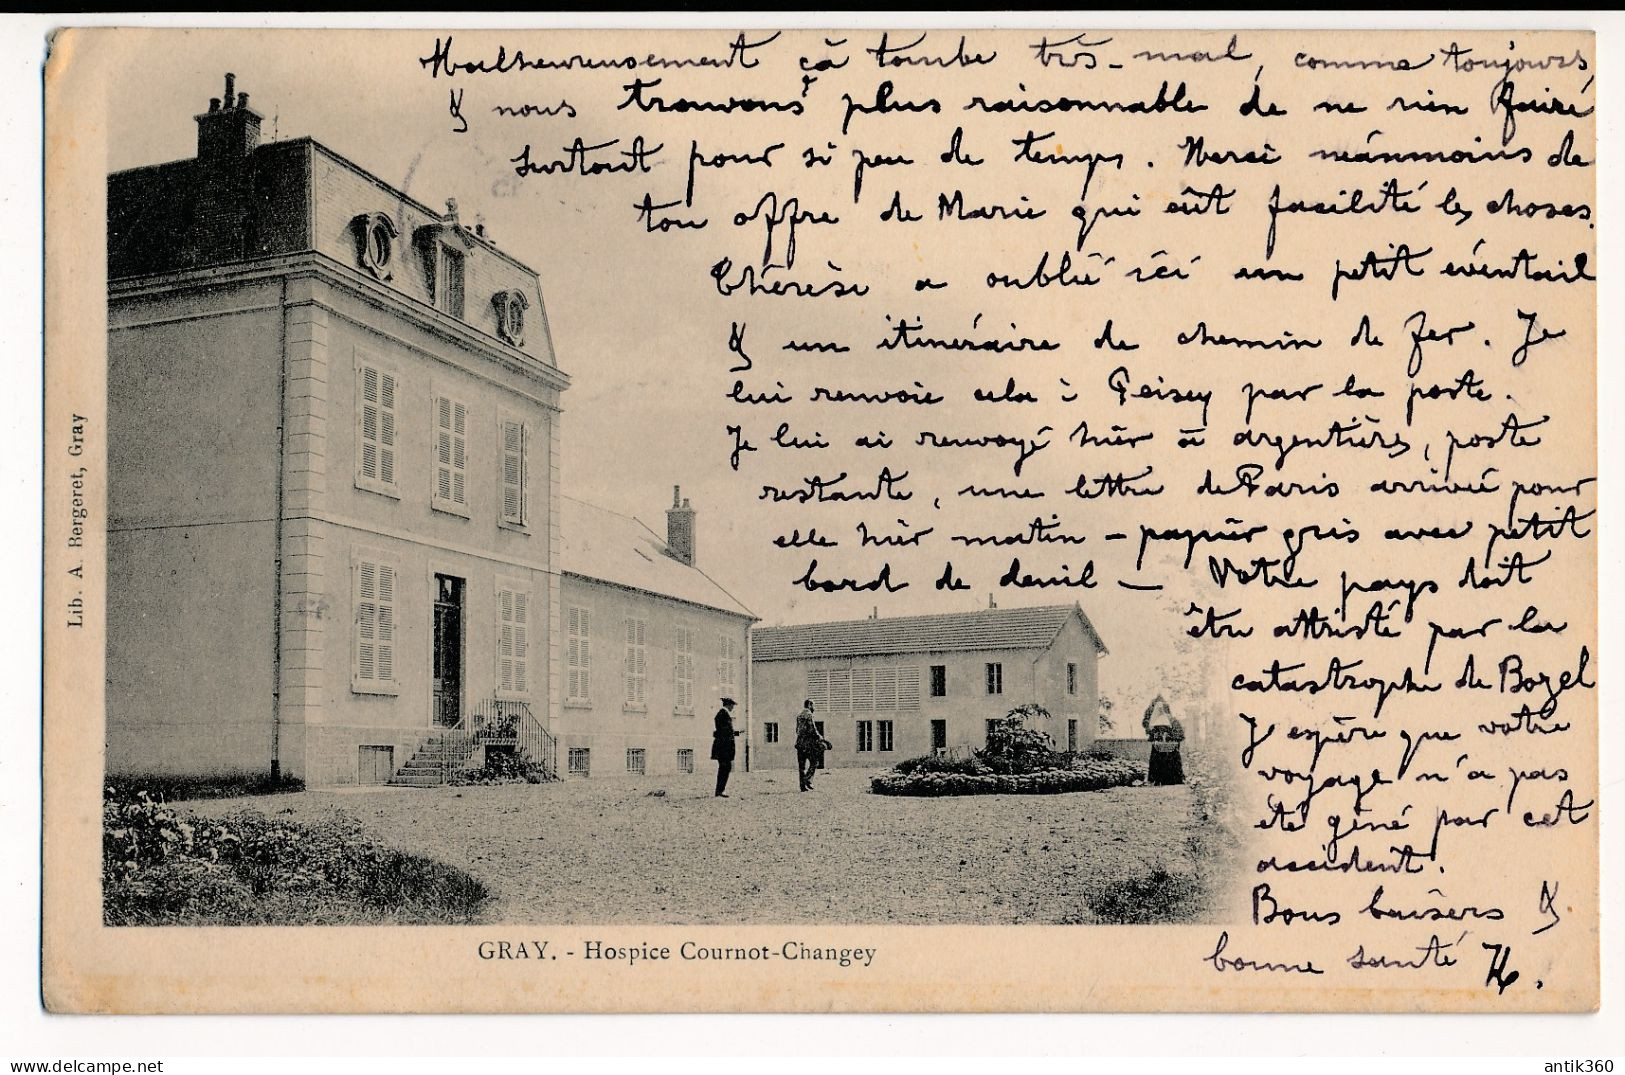 Malheureusement çà tombe très-mal, comme toujours,
& nous trouvons plus raisonnable de ne rien faire
surtout pour si peu de temps. Merci néanmoins de
ton offre de Marie qui eût facilité les choses.
Thérèse a oublié ici un petit éventail
& un itinéraire de chemin de fer. Je
lui renvoie cela à Peisey par la poste.
Je lui ai renvoyé hier à argentières, poste
restante, une lettre de Paris arrivée pour
elle hier matin - papier gris avec petit
bord de deuil - Votre pays doit
être attristé par la
catastrophe de Bozel
J'espère que votre
voyage n'a pas
été gêné par cet
accident.
Bons baisers &
bonne santé H.
Lib. A. Bergeret, Gray
GRAY. - Hospice Cournot-Changey
antik360